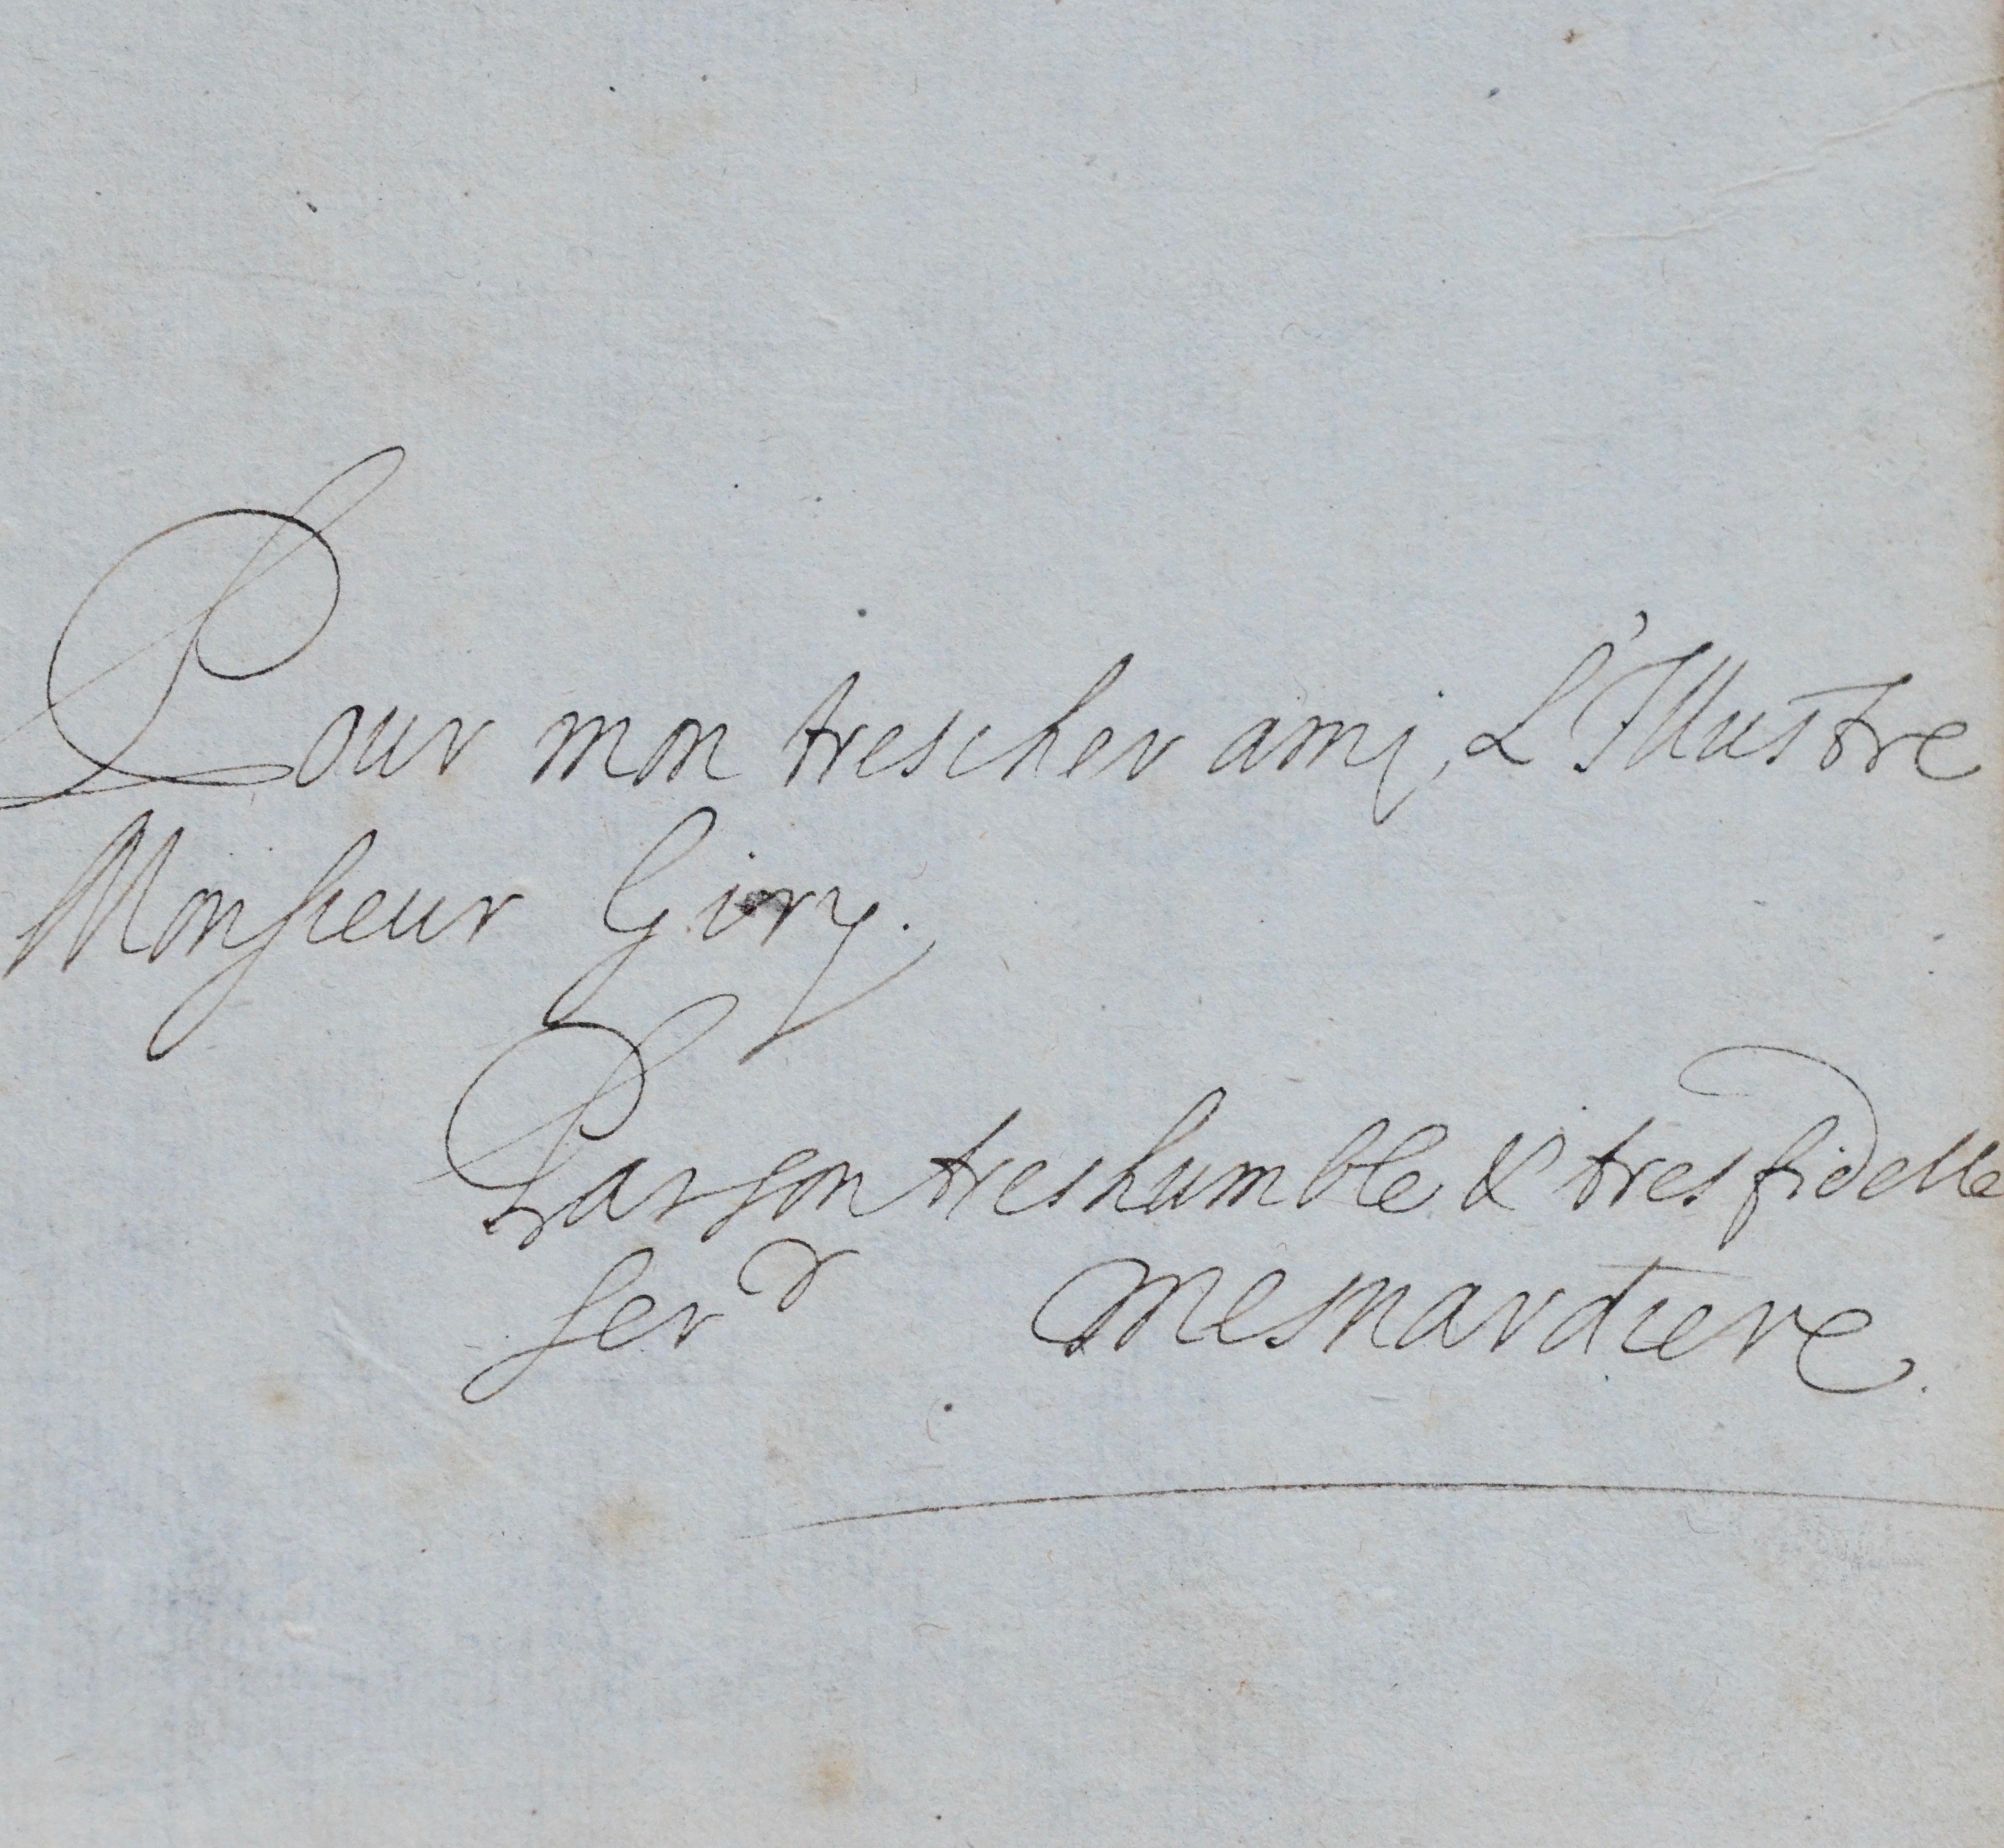 Pour mon trescher ami, L'Illustre
Monsieur Giry.
Par son treshumble & tresfidelle
serr Mesnardiere.